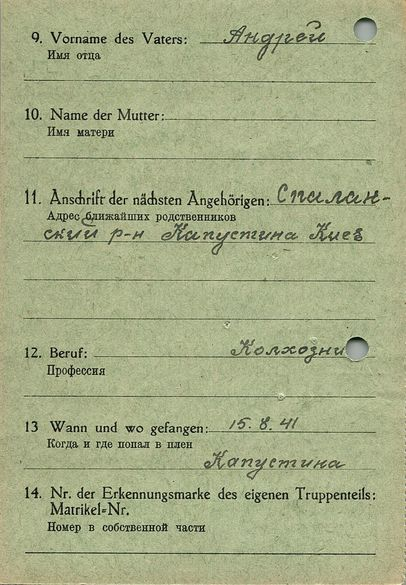 9. Vorname des Vaters: Андрей
Имя отца
10. Name der Mutter:
Имя матери
11. Anschrift der nächsten Angehörigen: Спалан-
Адрес ближайших родственников
ский р-н Капустина Киев
12. Beruf: Колхозни
Профессия
13 Wann und wo gefangen: 15.8.41
Когда и где попал в плен
Капустина
14. Nr. der Erkennungsmarke des eigenen Truppenteils:
Matrikel-Nr.
Номер в собственной части